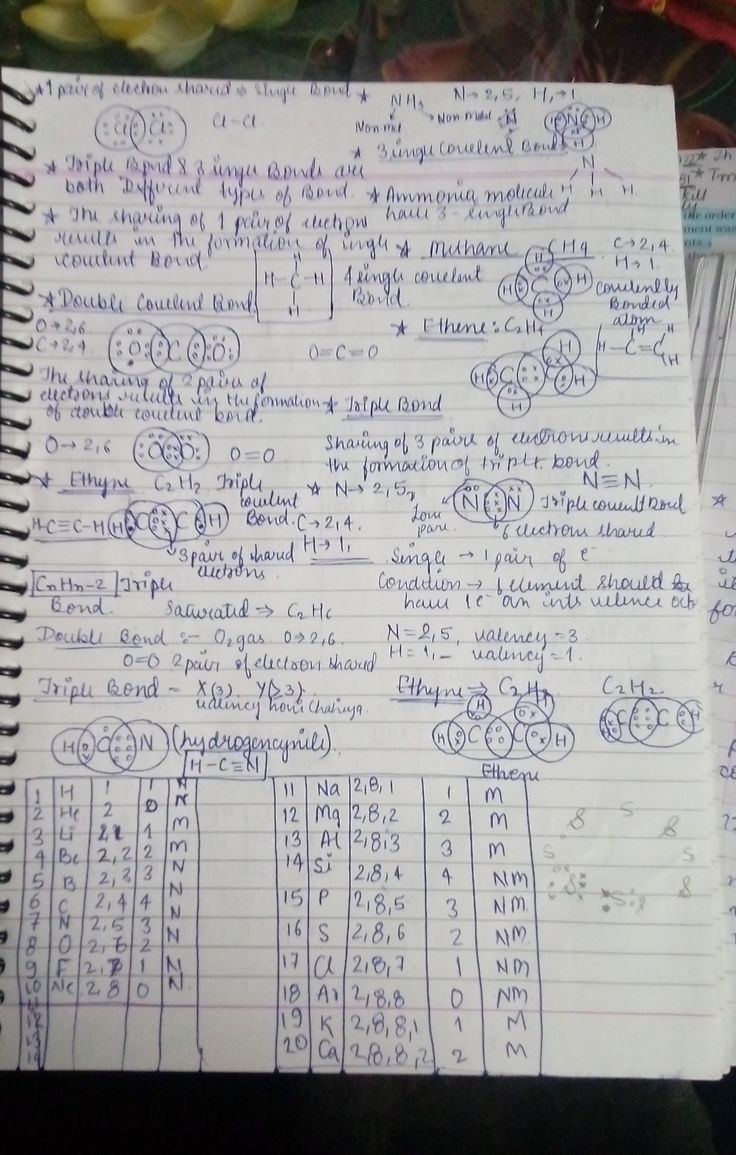 * 1 pair of electron shared ⇒ Single Bond
Cl Cl Cl-Cl
* Triple Bond & 3 single Bonds are
both Different types of Bond.
* The sharing of 1 pair of electron
results in the formation of single
covalent Bond.
* Double Covalent Bond.
O→2,6
C→2,4.
O C O O=C=O
The sharing of 2 pairs of
electrons results in the formation
of double covalent bond.
O→2,6 O O O=O
* NH3 N→2,5, H,→1.
Non metal Non metal N
H N H
H
* 3 single Covalent Bonds
N
H H H
* Ammonia molecule
have 3-single Bond
* Methane CH4 C→2,4.
H→1.
H
H-C-H
H
4 single covalent
Bond.
H
H C H
H
covalently
Bonded
atom
* Ethene: C2H4
H
H C C H
H
H H
H-C=C
H
* Triple Bond
Sharing of 3 pairs of electrons results in
the formation of triple bond.
* Ethyne C2H2 Triple
covalent
Bond.
H-C≡C-H H C C H
3 pair of shared
electrons
* N→2,5,
C→2,4.
H→1,
N≡N
N N Triple covalent Bond
Lone
pare.
6 electrons shared
Single → 1 pair of e-
CnHn-2 Triple
Bond. Saturated ⇒ C2H6
Condition → 1 element should
have 1e- in its valence
Double Bond :- O2 gas O→2,6.
O=O 2 pair of electron shared
N=2,5, valency=3.
H=1,- valency=1.
Triple Bond = X(3). Y(≥3).
valency honi chahiya.
Ethyne ⇒ C2H2 C2H2
H C N (hydrogencynide).
H-C≡N
H H
H C C H
Ethene
C C H
1 H 1 1 N
2 He 2 0 N
3 Li 2,1 1 M
4 Be 2,2 2 M
5 B 2,3 3 N
6 C 2,4 4 N
7 N 2,5 3 N
8 O 2,6 2 N
9 F 2,7 1 N
10 Ne 2,8 0 N
11
12
13
14
11 Na 2,8,1 1 M
12 Mg 2,8,2 2 M
13 Al 2,8,3 3 M
14 Si 2,8,4 4 NM
15 P 2,8,5 3 NM
16 S 2,8,6 2 NM
17 Cl 2,8,7 1 NM
18 Ar 2,8,8 0 NM
19 K 2,8,8,1 1 M
20 Ca 2,8,8,2 2 M
S
S S
S S
S S S